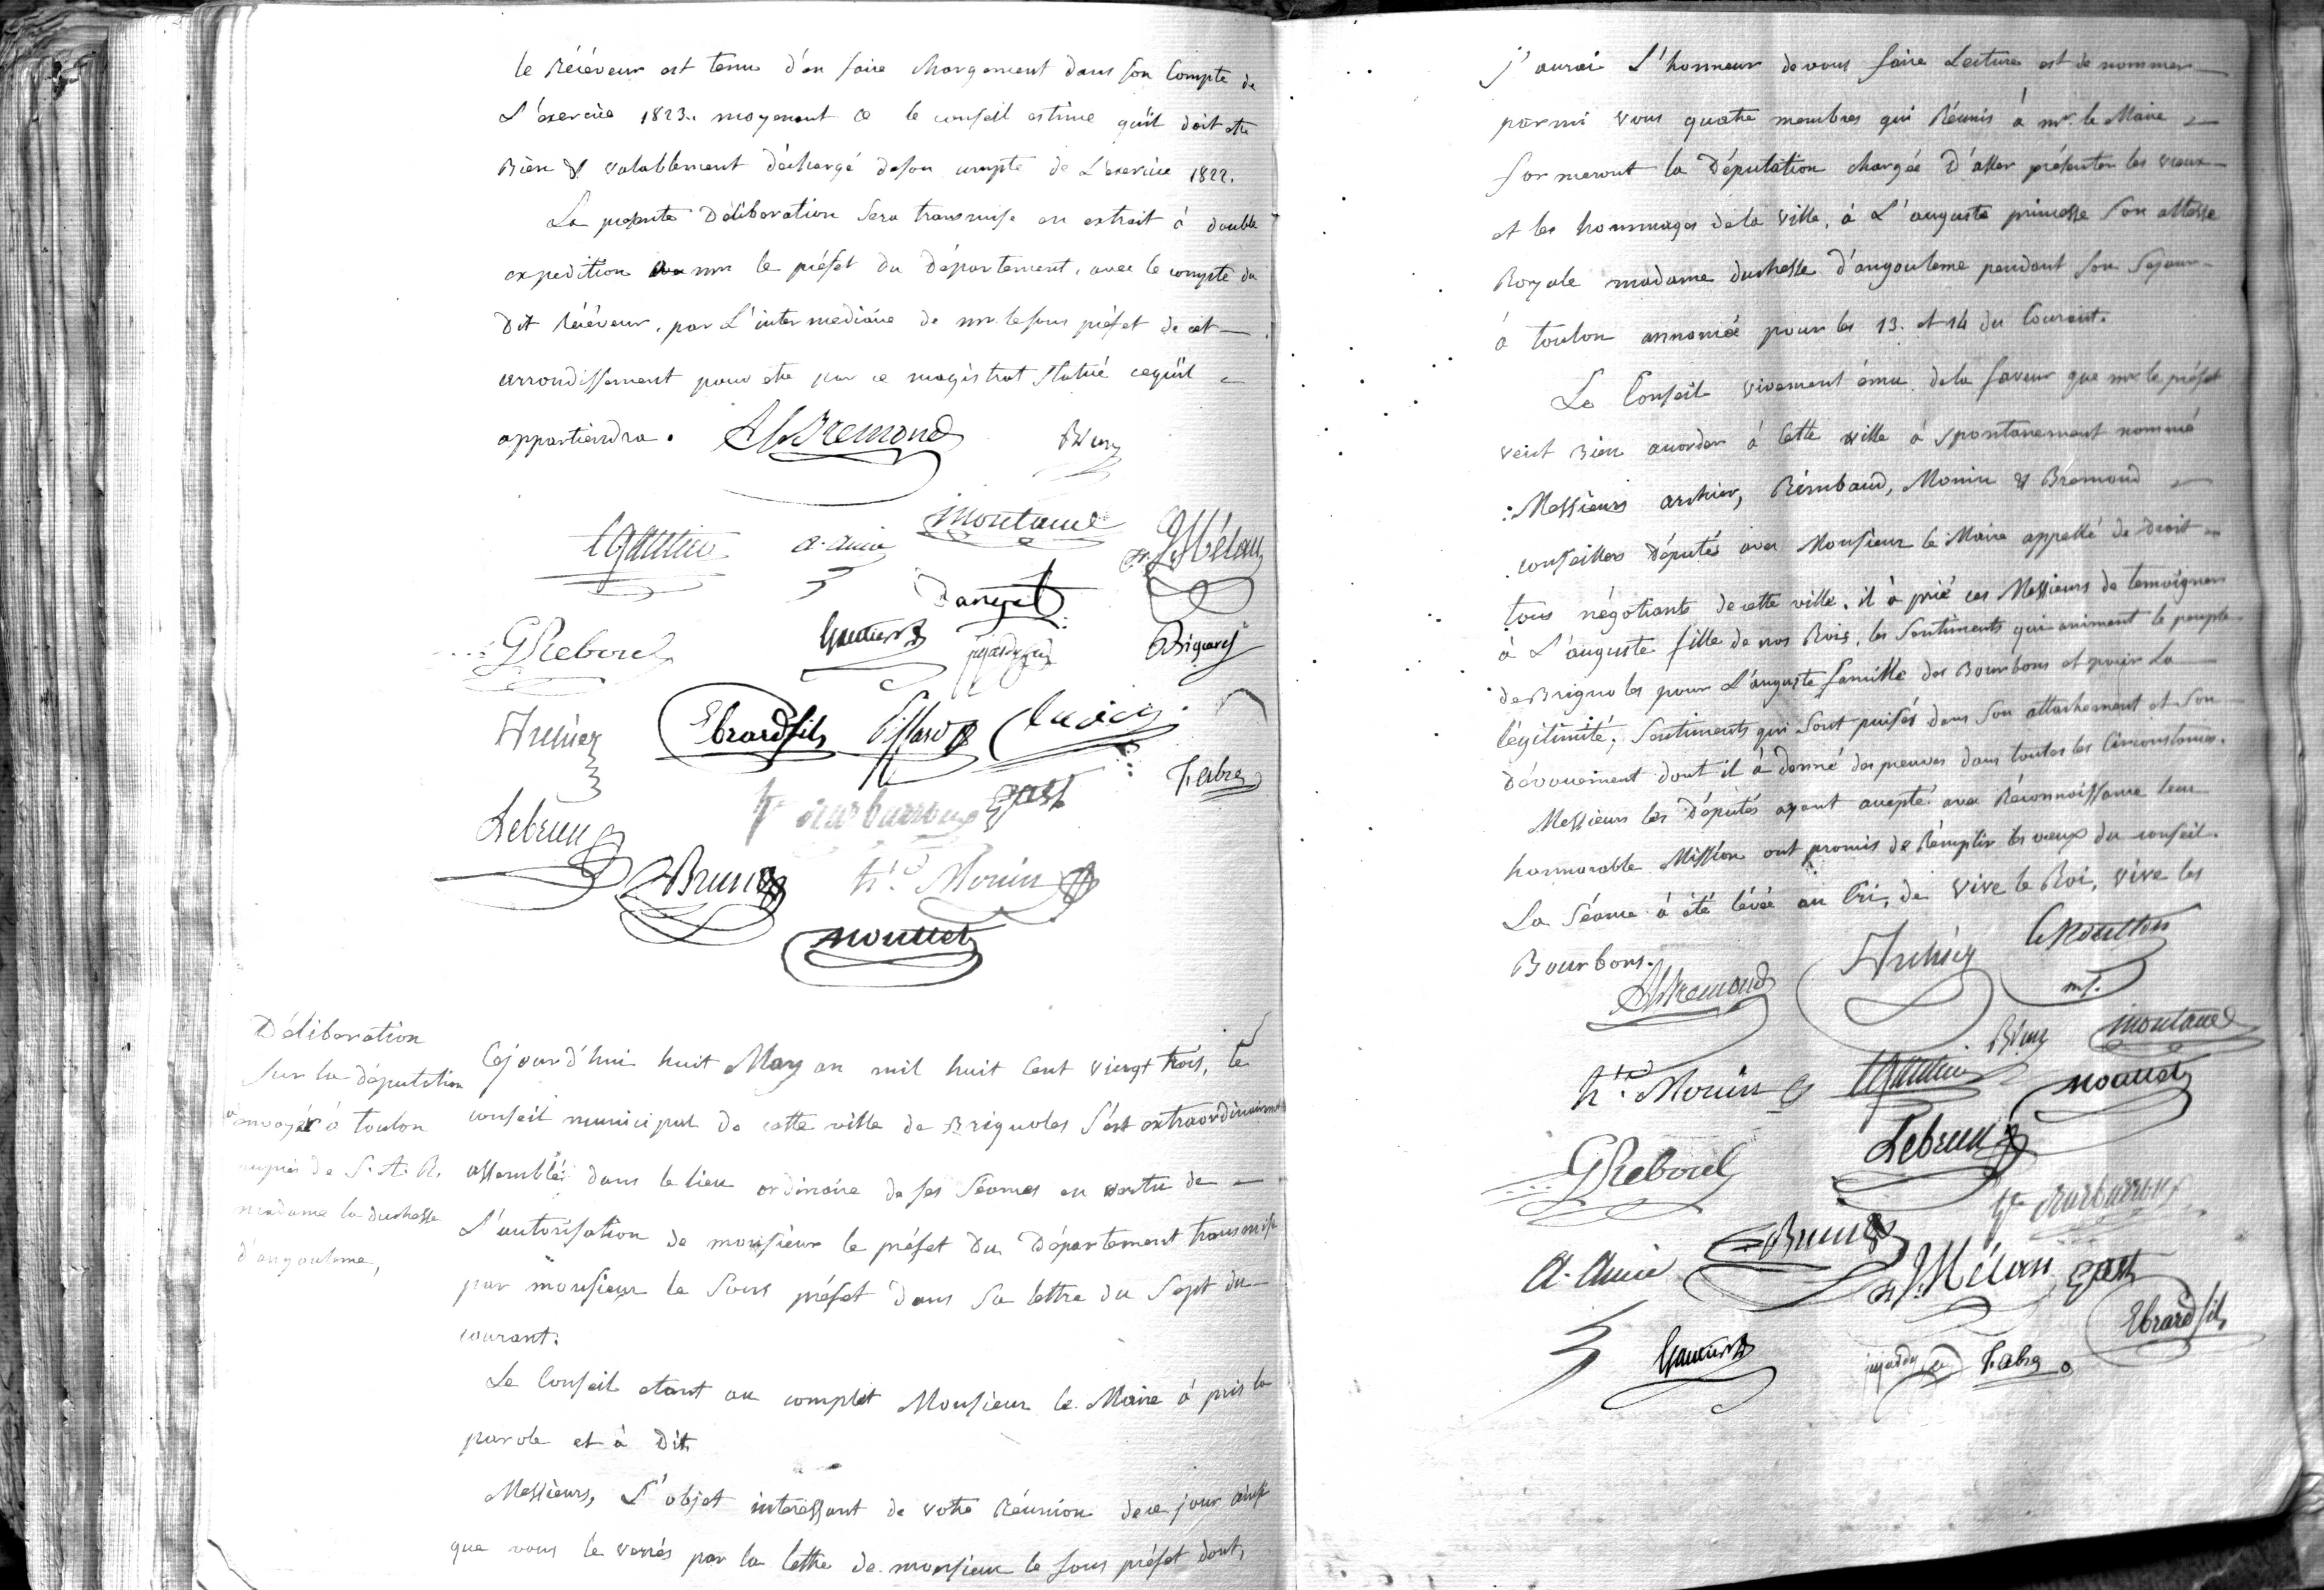 le Réceveur est tenu d'en faire chargement dans son Compte de
L'exercice 1823. moyenant ce le conseil estime qu'il doit etre
Bien & valablement déchargé de son compte de L'exercice 1822.
La presente Délibération sera transmise en extrait à double
expedition a mr le préfet du Département, avec le compte du
Dit Réceveur, par L'intermediaire de mr le sous préfet de cet
arrondissement pour etre par ce magistrat statué cequ'il
appartiendra.
ALBremond Brun
LGautier A. Amic Montaud Mélan
Danget
GReboul Gautier Brignard
Archier Ebrard fils Piffard
Fabre
Lebrun Gast
Brun hte Monin
Mouttet
Déliberation
Sur la députation
envoyér à toulon
auprès de S. A. R.
madame la duchesse
d'angouleme,
Cejourd'hui huit May an mil huit Cent vingt trois, le
conseil municipal de cette ville de Brignoles S'est extraordinairement
assemblé dans le lieu ordinaire de ses Séances en vertu de
L'autorisation de monsieur le préfet Du Département transmise
par monsieur le Sous préfet dans Sa lettre du Sept du
courant.
Le Conseil etant au complet Monsieur le Maire à pris la
parole et à Dit
Messieurs, L'objet interessant de votre Réunion de ce jour ainsi
que vous le verrés par la lettre de monsieur le sous préfet dont,
j'aurai L'honneur de vous faire Lecture est de nommer
parmi vous quatre membres qui Réunis à mr. le Maire
formeront la Députation chargée D'aller présenter les vœux
et les hommages de la ville, à L'auguste princesse Son altesse
Royale madame duchesse d'angouleme pendant son Sejour
à toulon annoncé pour les 13. et 14 du Courant.
Le Conseil vivement ému de la faveur que mr le préfet
veut Bien accorder à Cette ville à spontanement nommé
Messieurs archier, Rimbaud, Monin & Bremond
conseillers Députés avec Monsieur le Maire appellé de Droit
tous négotiants de cette ville. il à prié ces Messieurs de temoigner
à L'auguste fille de nos Rois, les Sentiments qui animent le peuple
de Brignoles pour L'auguste famille des Bourbons et pour La
légitimité; Sentiments qui Sont puisés dans Son attachement et Son
Dévouement dont il à donné des preuves dans toutes les Circonstances.
Messieurs les Députés ayant accepté avec Réconnoissance leur
honnorable Mission ont promis de Remplir les vœux du conseil.
La Séance à été levée au Cri, de Vive le Roi, Vive les
Bourbons.
ALBremond Archier
hte Monin LGautier Brun Montaud
Mouttet
GReboul Lebrun
A. Amic Brun Mélan Gast
Gautier Fabre Ebrard fils